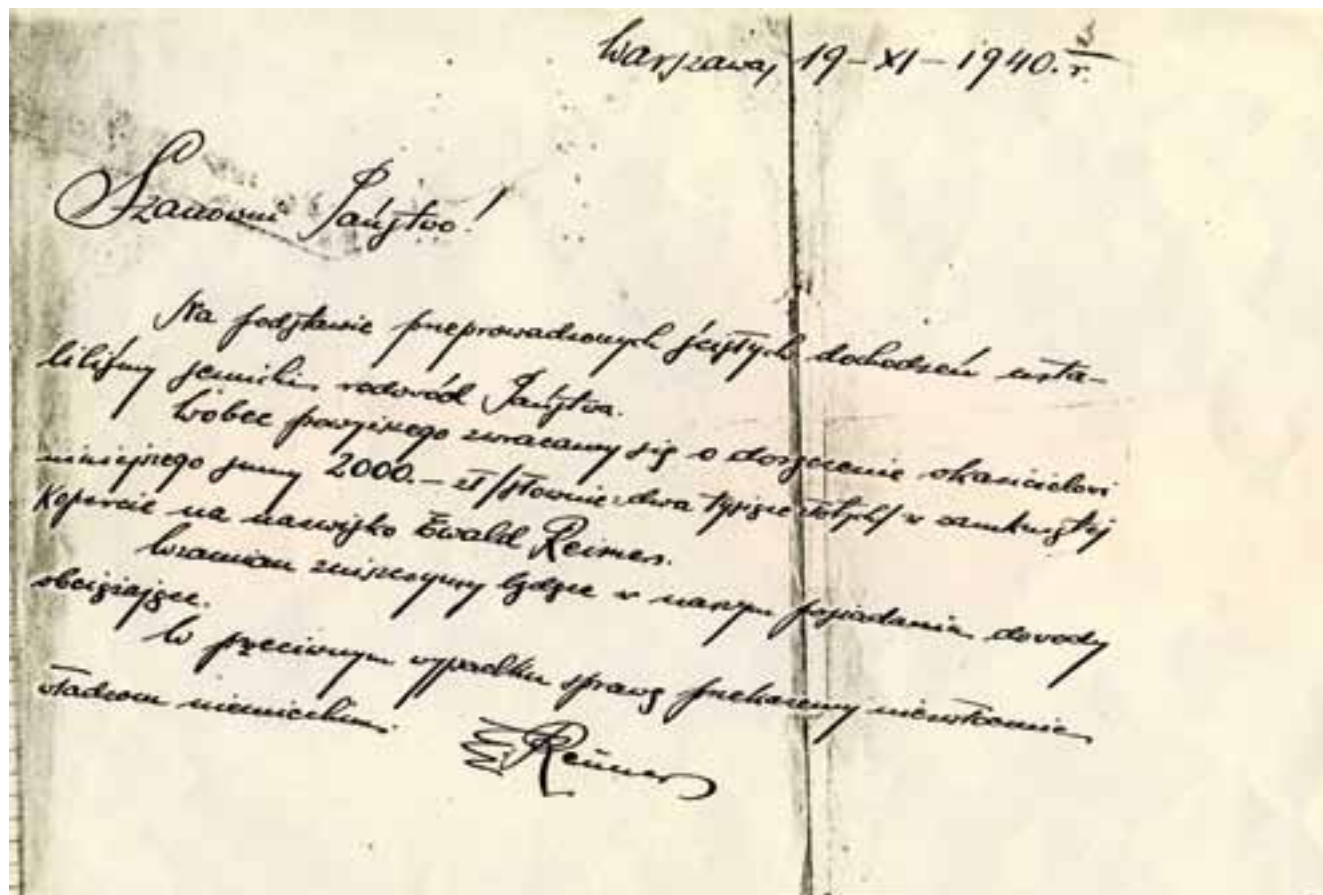 Warszawa, 19-XI-1940. r.
Szanowni Państwo!
Na podstawie przeprowadzonych ścisłych dochodzeń usta-
liliśmy semicki rodowód Państwa.
Wobec powyższego zwracamy się o doręczenie okazicielowi
niniejszego sumy 2000.- zł /słownie: dwa tysiące złotych/ w zamkniętej
kopercie na nazwisko Ewald Reimer.
Wzamian zniszczymy będące w naszym posiadaniu dowody
obciążające.
W przeciwnym wypadku sprawę przekażemy niezwłocznie
władzom niemieckim.
E. Reimer